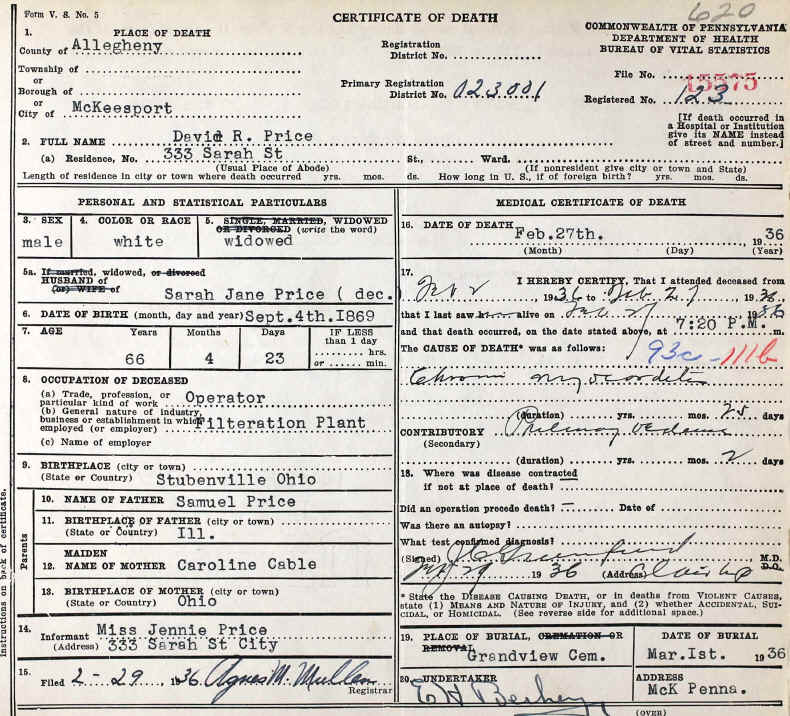 Form V. S. No. 5
CERTIFICATE OF DEATH
620
1. PLACE OF DEATH
County of Allegheny
Township of
or
Borough of
or
City of McKeesport
Registration
District No.
Primary Registration
District No. 023001
COMMONWEALTH OF PENNSYLVANIA
DEPARTMENT OF HEALTH
BUREAU OF VITAL STATISTICS
File No. 15575
Registered No. 123
[If death occurred in
a Hospital or Institution
give its NAME instead
of street and number.]
2. FULL NAME David R. Price
(a) Residence, No. 333 Sarah St St., Ward.
(Usual Place of Abode) (If nonresident give city or town and State)
Length of residence in city or town where death occurred yrs. mos. ds. How long in U. S., if of foreign birth? yrs. mos. ds.
PERSONAL AND STATISTICAL PARTICULARS
3. SEX
male
4. COLOR OR RACE
white
5. SINGLE, MARRIED, WIDOWED
OR DIVORCED (write the word)
widowed
5a. If married, widowed, or divorced
HUSBAND of
(or) WIFE of
Sarah Jane Price ( dec.)
6. DATE OF BIRTH (month, day and year) Sept.4th.I869
7. AGE Years Months Days IF LESS
than 1 day
66 4 23 hrs.
or min.
8. OCCUPATION OF DECEASED
(a) Trade, profession, or
particular kind of work Operator
(b) General nature of industry,
business or establishment in which
employed (or employer) Filteration Plant
(c) Name of employer
9. BIRTHPLACE (city or town)
(State or Country) Stubenville Ohio
Parents
10. NAME OF FATHER Samuel Price
11. BIRTHPLACE OF FATHER (city or town)
(State or Country) Ill.
MAIDEN
12. NAME OF MOTHER Caroline Cable
13. BIRTHPLACE OF MOTHER (city or town)
(State or Country) Ohio
14. Informant Miss Jennie Price
(Address) 333 Sarah St City
15. Filed 2-29, 1936 Agnes M. Mullen
Registrar
MEDICAL CERTIFICATE OF DEATH
16. DATE OF DEATH Feb.27th. 1936
(Month) (Day) (Year)
17. I HEREBY CERTIFY, That I attended deceased from
Feb 2 1936 to Feb. 27 1936
that I last saw alive on Feb. 27 1936
and that death occurred, on the date stated above, at 7:20 P.M. m.
The CAUSE OF DEATH* was as follows:
93c-111b
Chronic myocarditis
(duration) yrs. mos. 25 days
CONTRIBUTORY
(Secondary)
(duration) yrs. mos. 2 days
18. Where was disease contracted
if not at place of death?
Did an operation precede death? — Date of
Was there an autopsy?
What test confirmed diagnosis?
(Signed) M.D.
D.O.
29 1936 (Address)
* State the DISEASE CAUSING DEATH, or in deaths from VIOLENT CAUSES,
state (1) MEANS AND NATURE OF INJURY, and (2) whether ACCIDENTAL, SUI-
CIDAL, or HOMICIDAL. (See reverse side for additional space.)
19. PLACE OF BURIAL, CREMATION OR
REMOVAL
Grandview Cem.
DATE OF BURIAL
Mar.Ist. 1936
20. UNDERTAKER
ADDRESS
McK Penna.
(OVER)
Instructions on back of certificate.